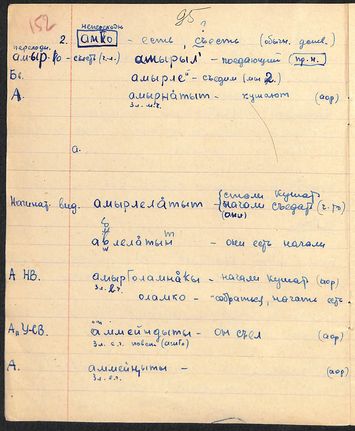 152 95
непереходн. ?
2. амко - есть, съесть (обычн. действ.)
переходн.
амыр-ҕо - съесть (ч.-л.) амырыл' - поедающий пр. н.
Бв. амырле̄ - съедим (мы 2.)
А. амырна́тыт - кушают (аор)
3 л. м. ч.
а.
Начинат. вид. амырлела́тыт - стали кушать
начали съедать (ч.-то)
(они)
лелатын - они есть начали
А НВ. оламна́ - начали кушать (аор)
3 л.
оламко - собраться, начать есть
ammейндыты - он съел (аор)
3 л. е.ч.
А. аммейцыты - (аор)
3 л. е.ч.